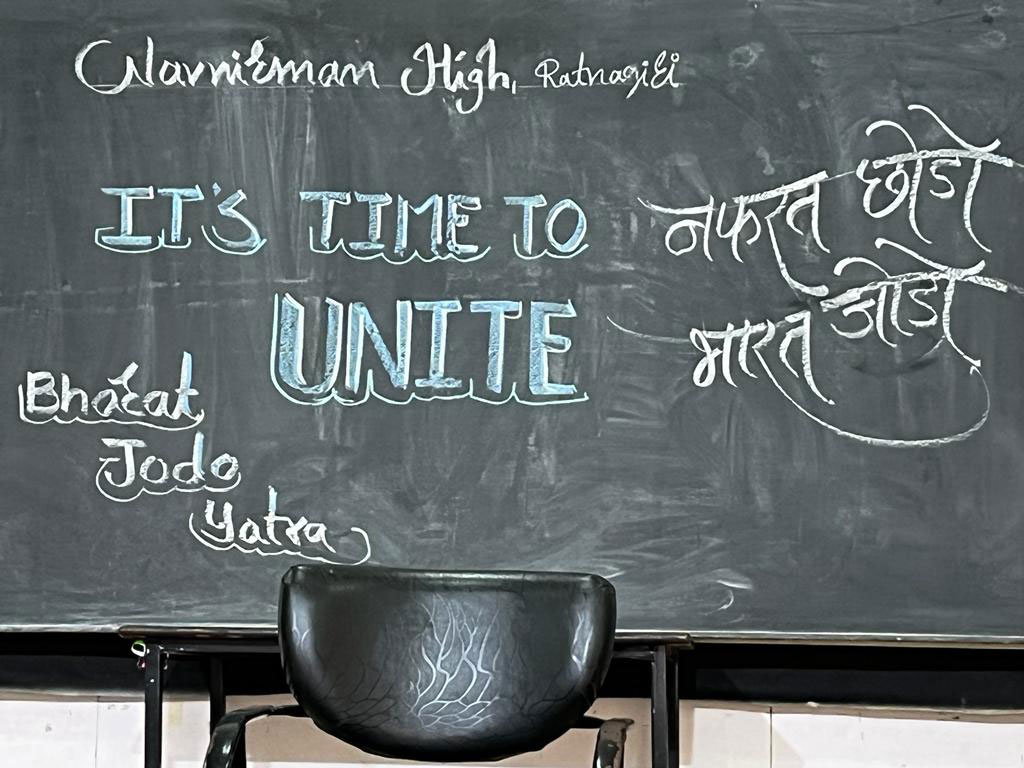 Navnirman High, Ratnagiri
IT'S TIME TO
UNITE
नफरत छोडो
भारत जोडो
Bharat
Jodo
Yatra